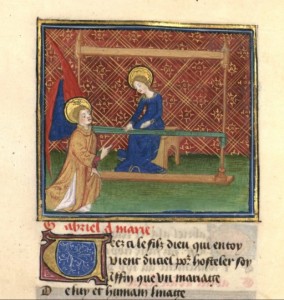 Gabriel a marie
Vecci le filz dieu qui en toy
vient du ciel por hosteler soy
Affin que un mariage
De luy et humain linage